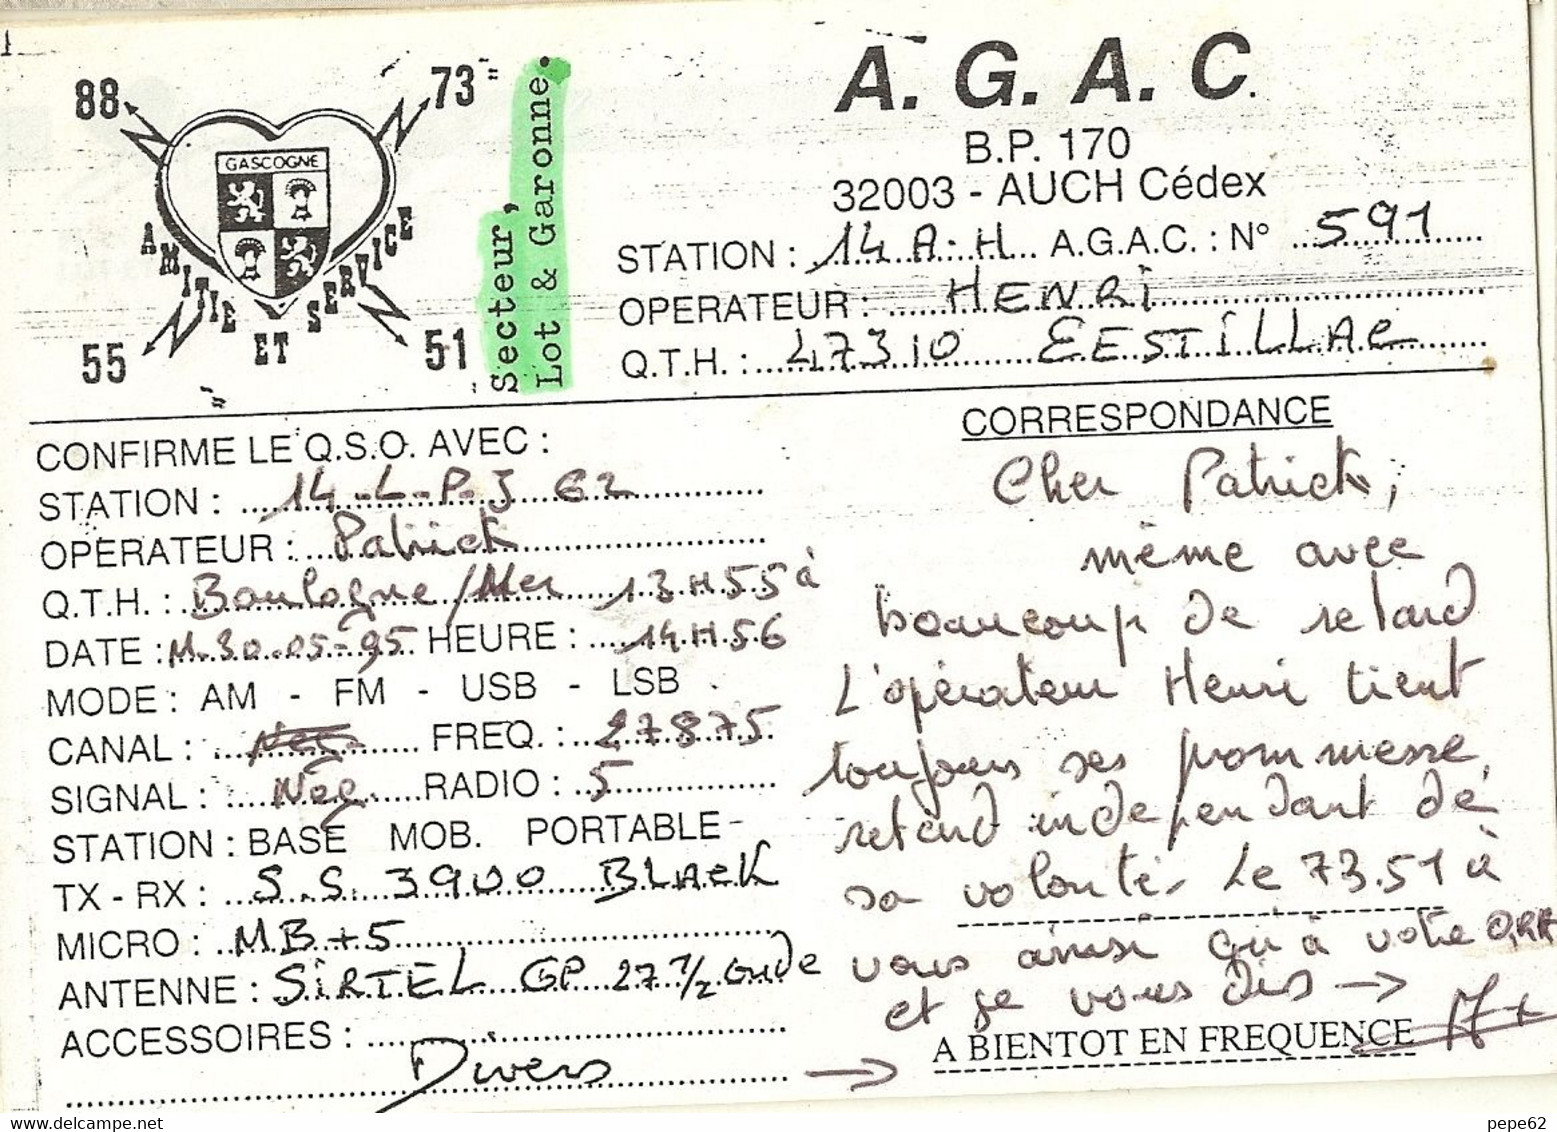 88 73 "
GASCOGNE
AMITIE ET SERVICE
55 51
"
Secteur,
Lot & Garonne.
A. G. A. C.
B.P. 170
32003 - AUCH Cédex
STATION : 14 A.H A.G.A.C. : N° 591
OPERATEUR : HENRi
Q.T.H. : 47310 EESTiLLAC
CONFIRME LE Q.S.O. AVEC :
STATION : 14-L-P-J 62
OPERATEUR : Patrick
Q.T.H. : Boulogne/Mer 13H55 à
DATE : M.30.05-95 HEURE : 14H56
MODE : AM - FM - USB - LSB
CANAL : FREQ. : 27875
SIGNAL : Nég RADIO : 5
STATION : BASE MOB. PORTABLE-
TX - RX : S.S. 3900 BLAcK
MICRO : MB+5
ANTENNE : SiRTEL GP 27 1/2 onde
ACCESSOIRES :
Divers
CORRESPONDANCE
Cher Patrick,
même avec
beaucoup de retard
L'opérateur Henri tient
toujours ses prommesse,
retard indépendant de
sa volonté. Le 73.51 à
vous ainsi qu'à votre QRA
et je vous dis →
A BIENTOT EN FREQUENCE
pepe62